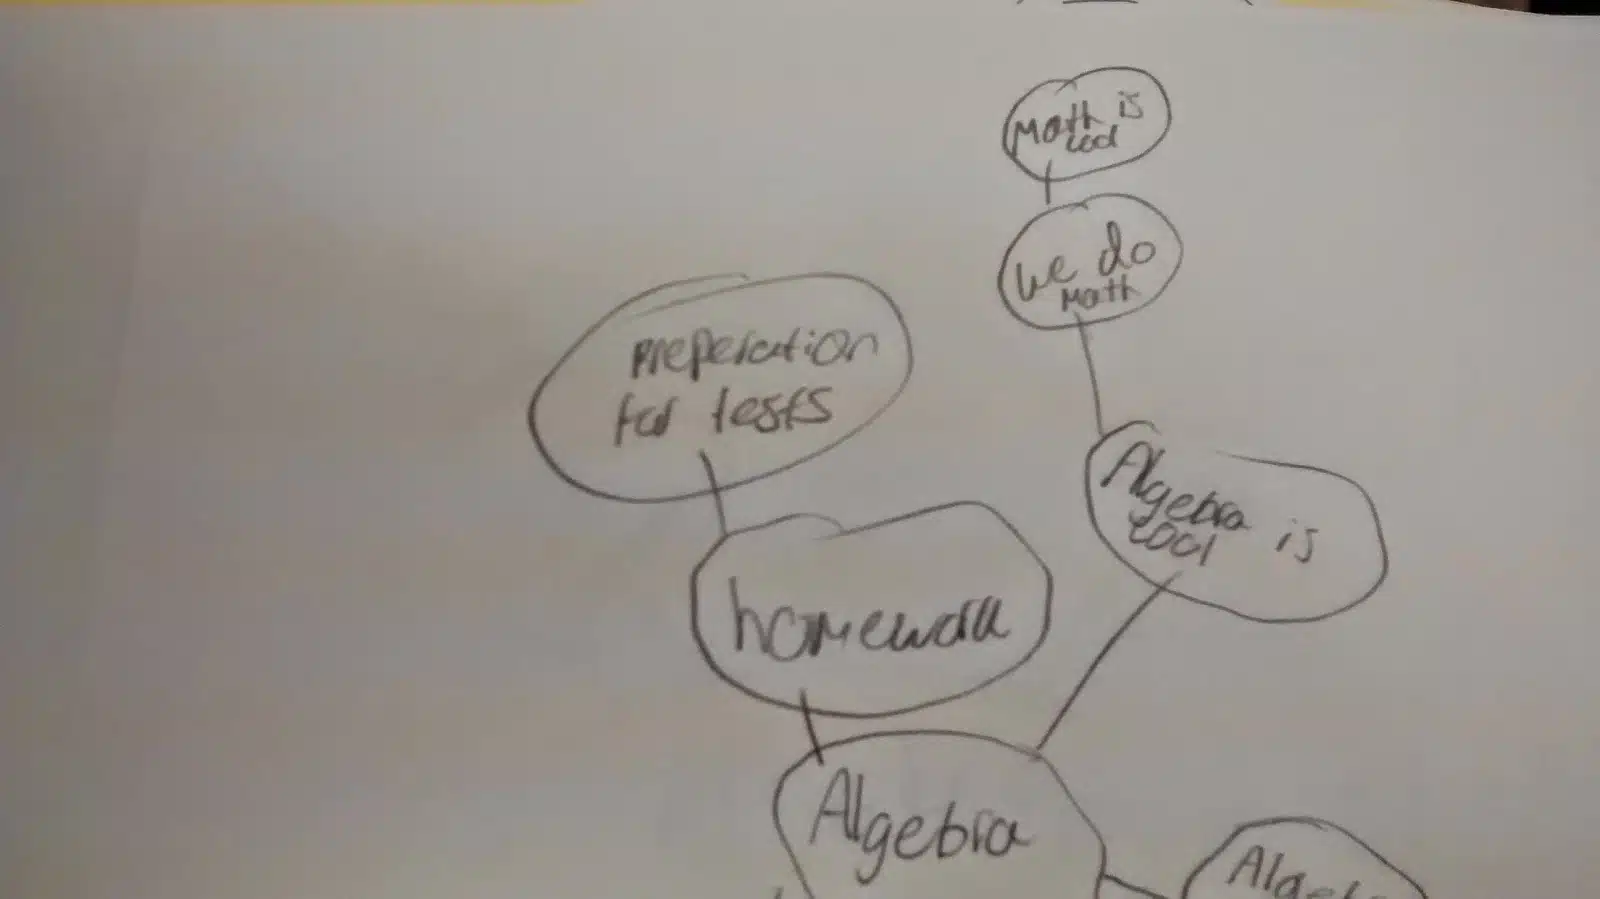 Math is
cool
we do
Math
preperation
for tests
Algebra is
cool
homework
Algebra